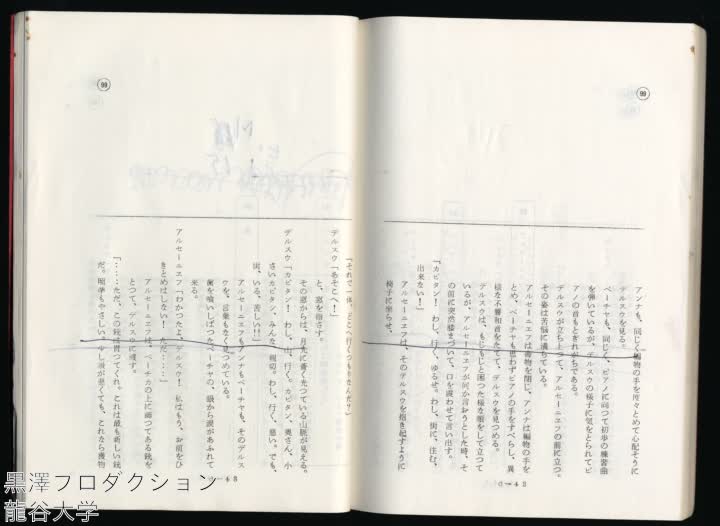 99
アンナも、同じく編物の手を時々とめて心配そうに
デルスウを見る。
ペーチャも、同じく、ピアノに向つて初歩の練習曲
を弾いているが、デルスウの様子に気をとられてピ
アノの音もとぎれがちである。
デルスウが立ち上つて、アルセーニエフの前に立つ。
その姿は苦悩に満ちている。
アルセーニエフは書物を閉じ、アンナは編物の手を
とめ、ペーチャも思わずピアノの手をすべらし、異
様な不響和音をたてて、デルスウを見つめる。
デルスウは、もじもじと困つた様な顔をして立つて
いるが、アルセーニエフが何か言おうとした時、そ
の前に突然膝まづいて、口を震わせて言い出す。
「カピタン! わし、行く、ゆるせ。わし、街に、住む、
出来ない!」
アルセーニエフは、そのデルスウを抱き起すように
椅子に坐らせ、
D-43
99
「それで一体、どこへ行くつもりなんだ?」
デルスウ「あそこへ!」
と、窓を指さす。
その窓からは、月光に蒼く光つている山脈が見える。
デルスウ「カピタン! わし、山、行く。カピタン、奥さん、小
さいカピタン、みんな、親切。わし、行く、悪い。でも、
街、いる、苦しい!!」
アルセーニエフもアンナもペーチャも、そのデルス
ウを、言葉もなく見つめている。
歯を喰いしばつたペーチャの、眼から涙があふれて
来る。
アルセーニエフ「わかつたよ、デルスウ! 私はもう、お前をひ
きとめはしない! ただ……」
アルセーニエフは、ペーチカの上に飾つてある銃を
とつて、デルスウに渡す。
「……ただ、この銃は貰つてくれ。これは最も新しい銃
だ。照準もやさしい。少し眼が悪くても、これなら獲物
-43
黒澤プロダクション
龍谷大学